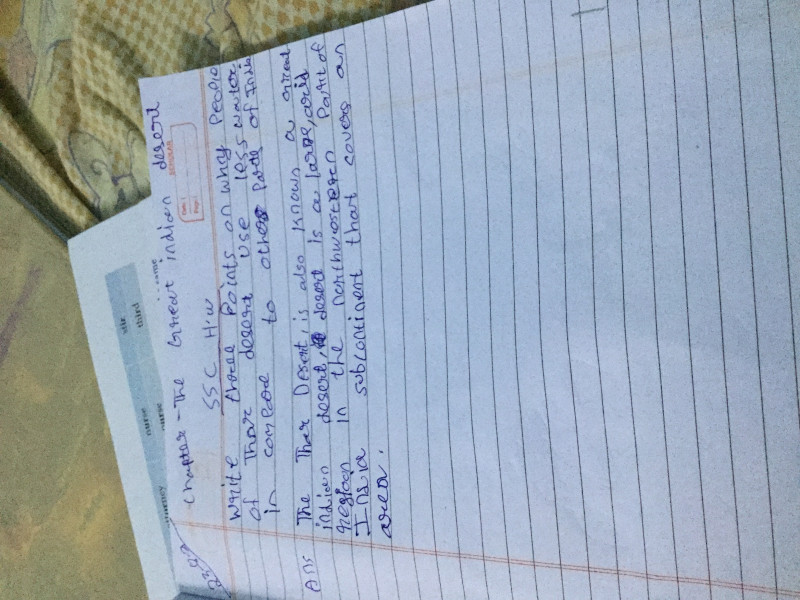 Chapter - The Great indian desert
SSC H.W
Write three Points on why People
of Thar desert use less water
in compare to other Parts of India
Ans The Thar Desert, is also known a Great
indian desert, desert is a large, arid
Region in the northwestern Part of
India subcontinent that covers an
area.
six
third
nurse